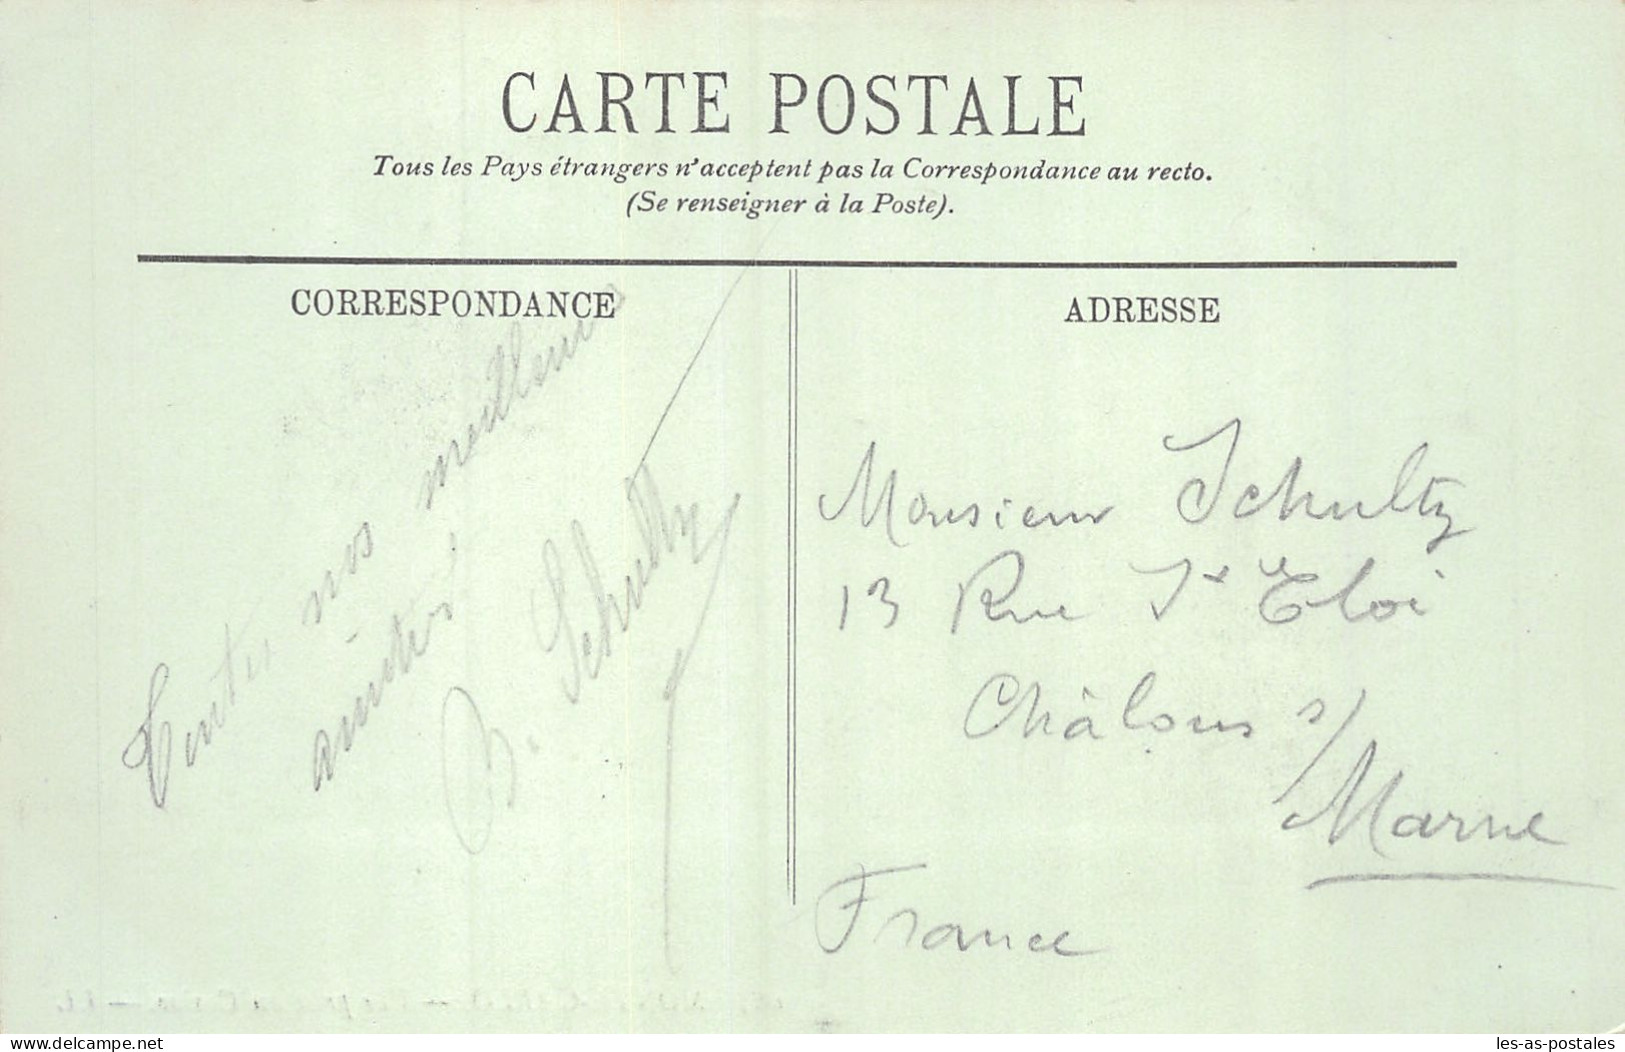 CARTE POSTALE
Tous les Pays étrangers n'acceptent pas la Correspondance au recto.
(Se renseigner à la Poste).
CORRESPONDANCE
ADRESSE
Toutes nos meilleures
amitiés
Schultz
Monsieur Schultz
13 Rue St Eloi
Châlons s/
Marne
France
delcampe.net
les-as-postales